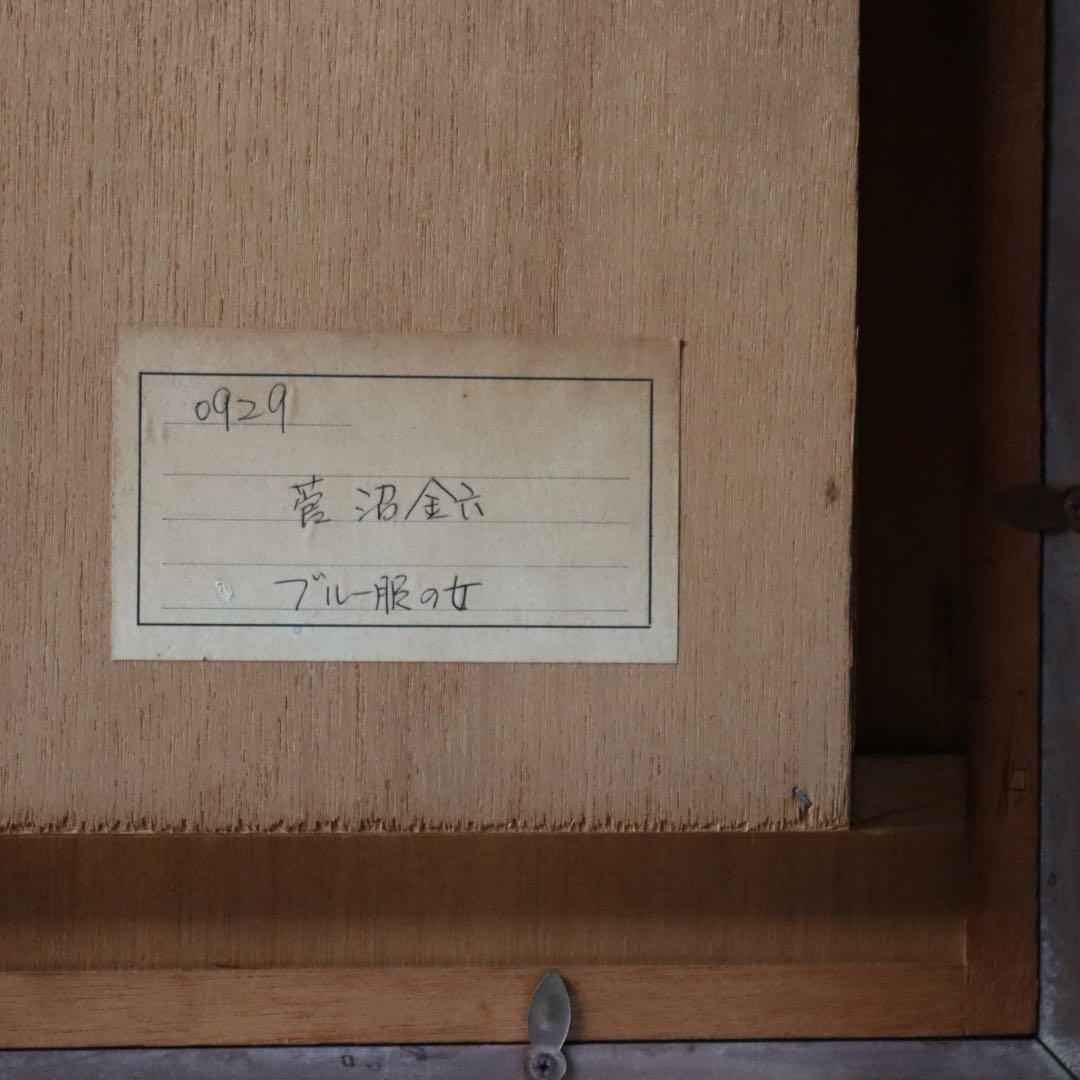 0929
菅沼金六
ブルー服の女